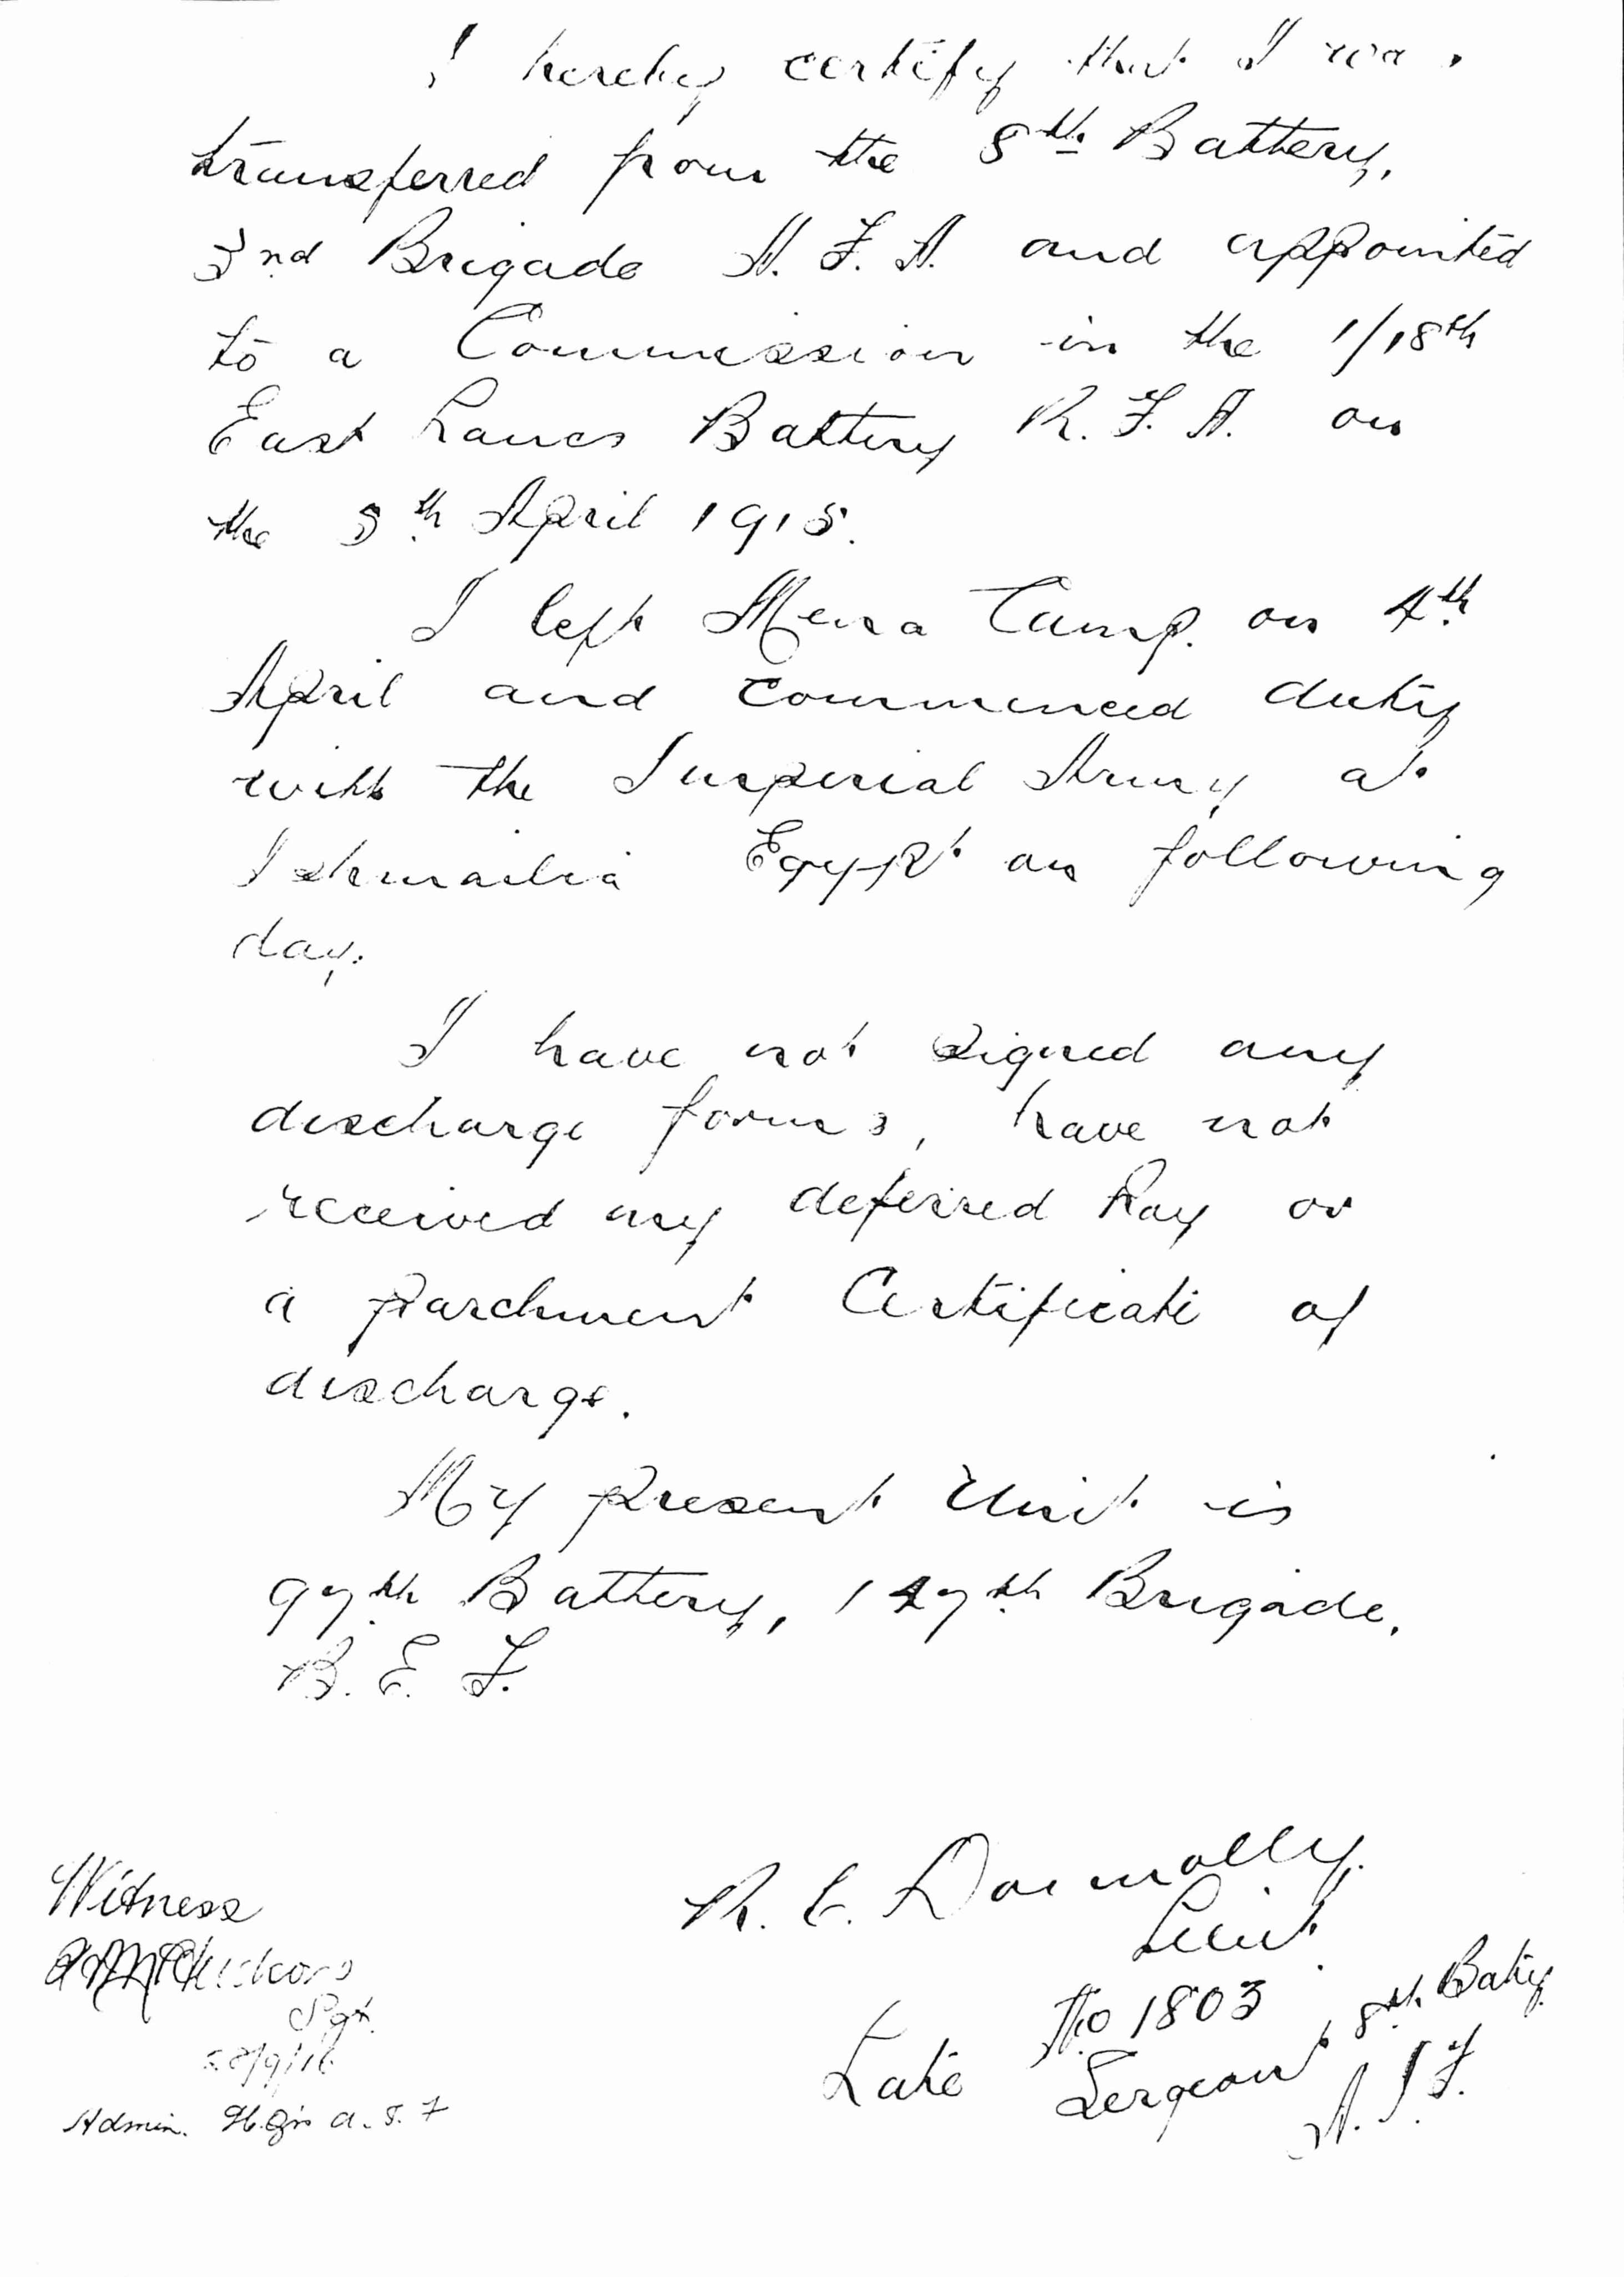 I hereby certify that I was
transferred from the 8th Battery,
3nd Brigade A. F. A. and appointed
to a Commission in the 1/18th
East Lancs Battery R. F. A. on
the 5th April 1915.
I left Mena Camp. on 4th
April and commenced duty
with the Imperial Army at
Ishmailia Egypt on following
day.
I have not signed any
discharge forms, have not
received my deferred Pay or
a parchment Certificate of
discharge.
My present Unit is
97th Battery, 147th Brigade,
B. E. F.
R. E. Donnolly.
Lieut.
No 1803
Late Sergeant, 8th Baty
A. I. F.
Witness
Sgt.
28/9/16
Admin. H.Qrs A. I. F